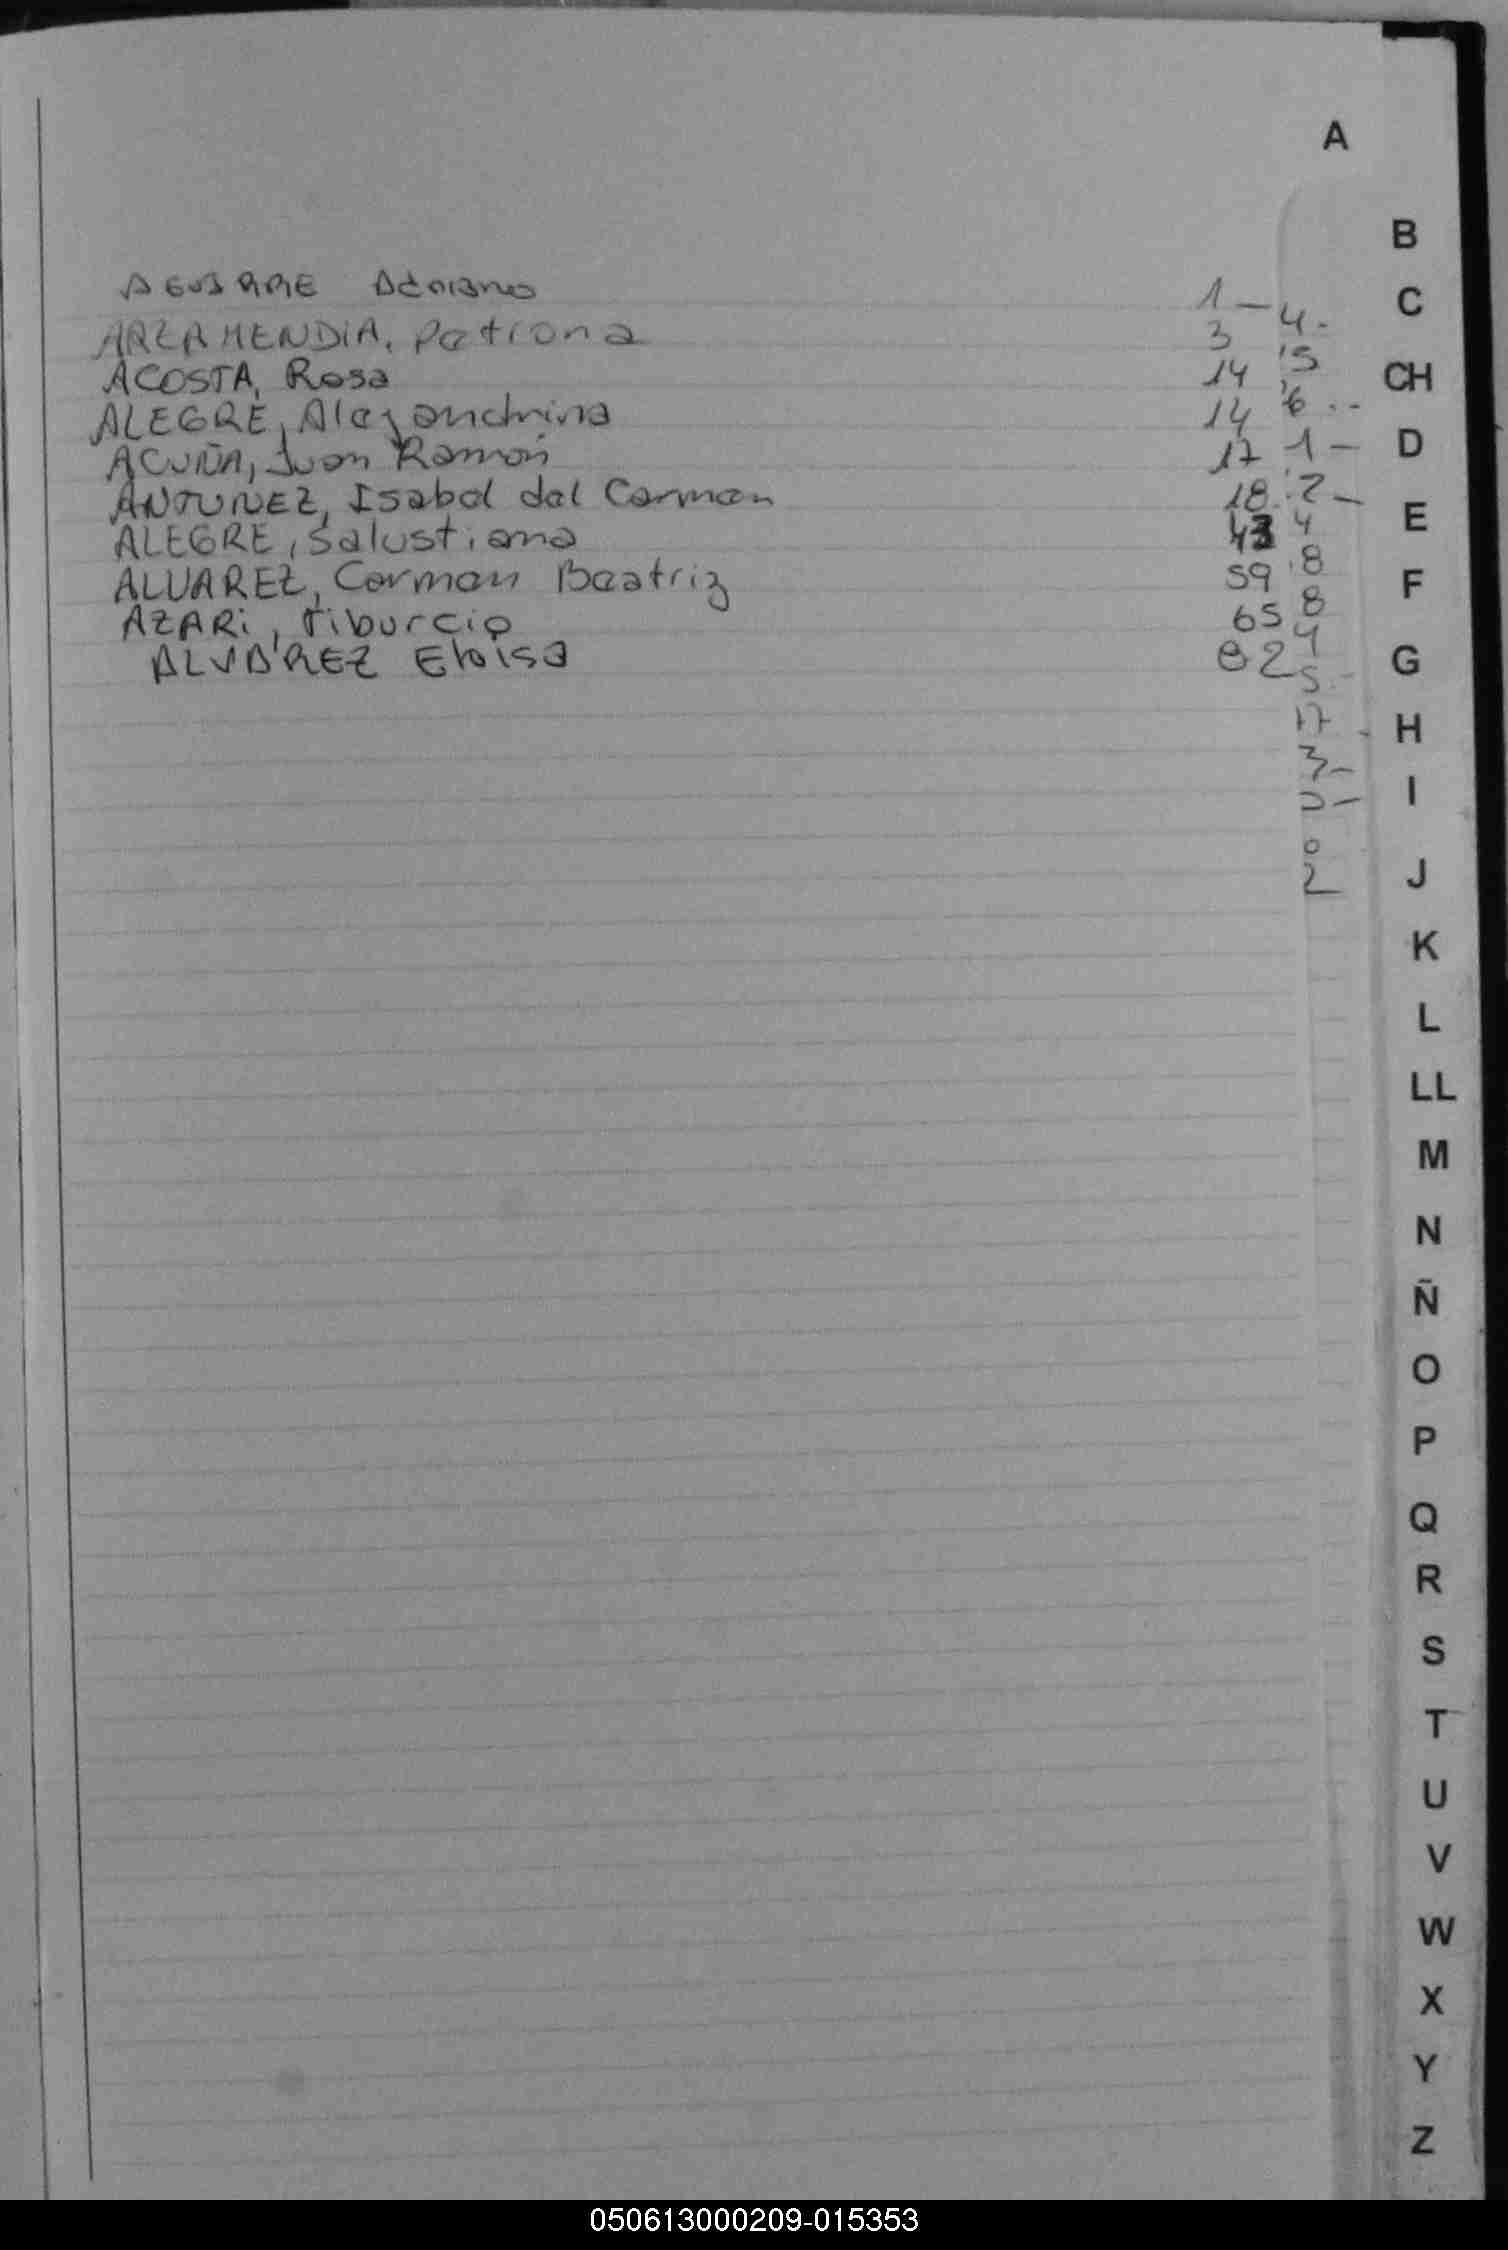 A
AGUIRRE Adriano 1
ARZAMENDIA, Petrona 3
ACOSTA, Rosa 14
ALEGRE, Alejandrina 14
ACUÑA, Juan Ramón 17
ANTUNEZ, Isabel del Carmen 18
ALEGRE, Salustiana 43
ALVAREZ, Carmen Beatriz 59
AZARI, Tiburcio 65
ALVAREZ Eloisa 82
4
5
6
1
2
4
8
8
4
5
17
3
2
B
C
CH
D
E
F
G
H
I
J
K
L
LL
M
N
Ñ
O
P
Q
R
S
T
U
V
W
X
Y
Z
050613000209-015353